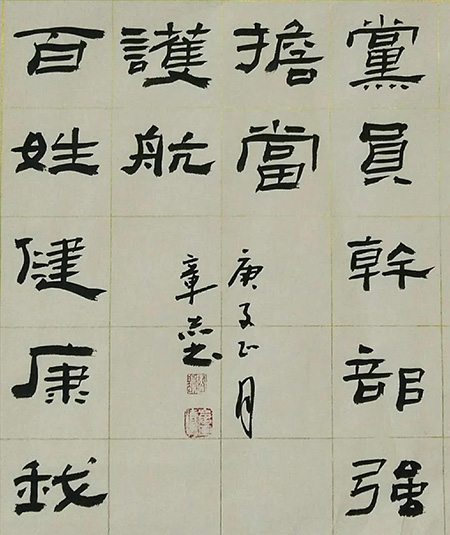 黨員幹部強
擔當
百姓健康我
護航
庚子正月
章